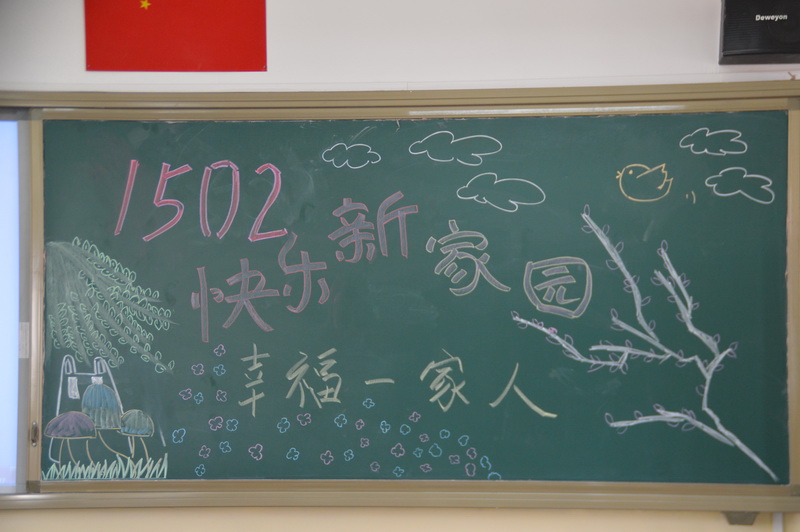 Deweyon
1502
快乐新家园
幸福一家人